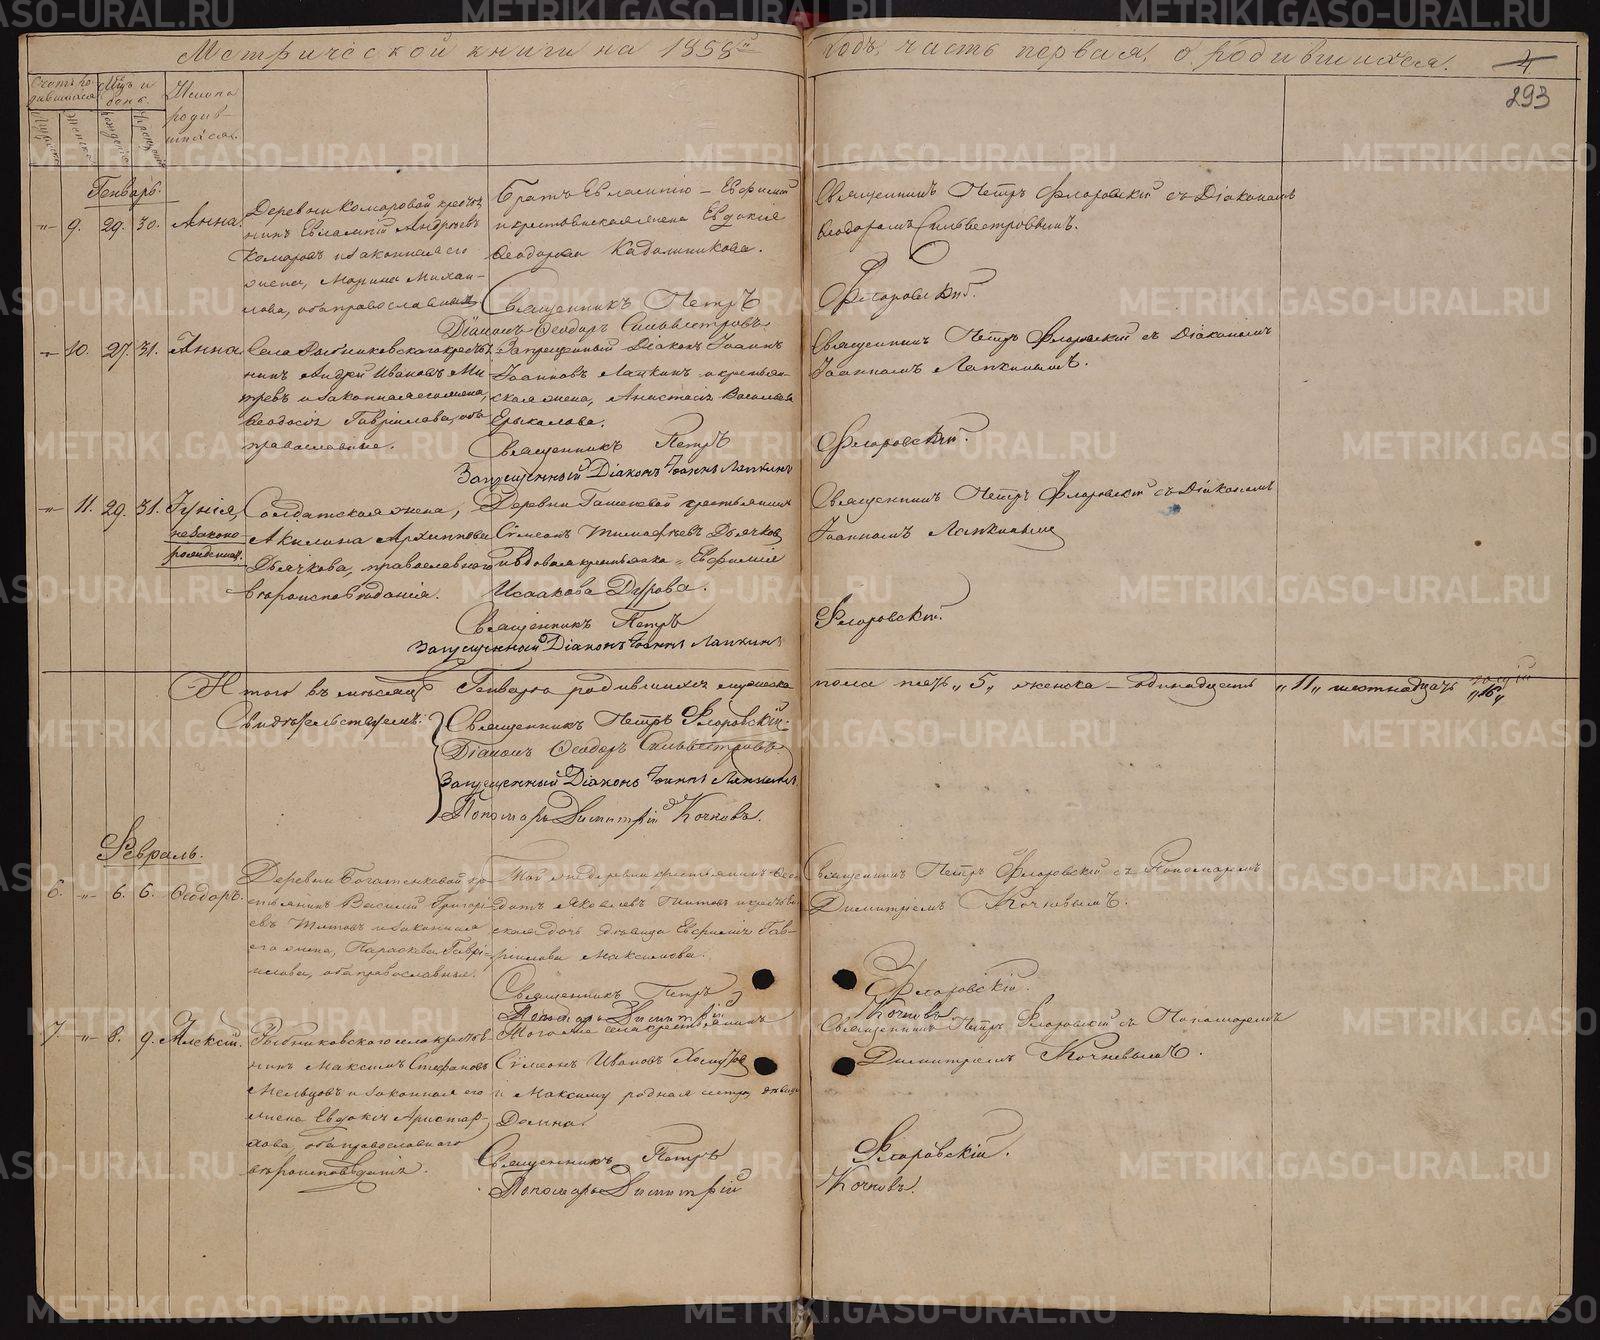 Метрической книги на 1858й Годъ, часть первая, о родившихся.
4
293
Счетъ родившихся
Мѣсяцъ и день
Имена родившихся
Мужска
Женска
рожденія
крещенія
Генварь.
-"- 9. 29. 30. Анна.
Деревни Комаровой крестья-
нинъ Евлампій Андреевъ
Комаровъ и законная его
жена, Марина Михаи-
лова, оба православные
Братъ Евлампію - Евфимій
и крестьянская жена Евдокія
Ѳеодорова Кадошникова.
Священникъ Петръ
Діаконъ Ѳеодоръ Сильвестровъ
Священникъ Петръ Флоровскій съ Діакономъ
Ѳеодоромъ Сильвестровымъ.
Флоровскій.
-"- 10. 27. 31. Анна.
Села Рыбниковскаго крестья-
нинъ Андрей Ивановъ
и законная его жена,
Ѳеодосія Гавріилова, оба
православные.
Запрещенный Діаконъ Іоаннъ
Іоанновъ Лапкинъ и крестьян-
ская жена, Анастасія Васильева
Ерыкалова.
Священникъ Петръ
Запрещенный Діаконъ Іоаннъ Лапкинъ
Священникъ Петръ Флоровскій съ Діакономъ
Іоанномъ Лапкинымъ.
Флоровскій.
-"- 11. 29. 31. Іунія,
незаконо-
рожденная.
Солдатская жена,
Акилина Архиппова
Дьячкова, православнаго
вѣроисповѣданія.
Деревни крестьянинъ
Сѵмеонъ Тимофеевъ Дьячковъ
и вдовая крестьянка Евфимія
Исаакова Дурова.
Священникъ Петръ
Запрещенный Діаконъ Іоаннъ Лапкинъ
Священникъ Петръ Флоровскій съ Діакономъ
Іоанномъ Лапкинымъ
Флоровскій.
Итого въ мѣсяцѣ Генварѣ родившихся мужеска пола пять "5" женска - одиннадцать "11" шестнадцать "16"
Свидѣтельствуемъ:
Священникъ Петръ Флоровскій.
Діаконъ Ѳеодоръ Сильвестровъ
Запрещенный Діаконъ Іоаннъ Лапкинъ
Пономарь Димитрій Кочневъ.
Февраль.
6. -"- 6. 6. Ѳеодоръ.
Деревни Богатенковой кре-
стьянинъ Василій Григорі-
евъ Титовъ и законная
его жена, Параскева Гаврі-
илова, оба православные.
Той же деревни крестьянинъ Ѳео-
дотъ Яковлевъ Титовъ и
дочь дѣвица Евфимія Гав-
ріилова Максимова.
Священникъ Петръ
Пономарь Димитрій
Священникъ Петръ Флоровскій съ Пономаремъ
Димитріемъ Кочневымъ.
Флоровскій.
Кочневъ.
7. -"- 8. 9. Алексій.
Рыбниковскаго села крестья-
нинъ Максимъ Стефановъ
Мельцовъ и законная его
жена Евдокія Аристар-
хова, оба православнаго
вѣроисповѣданія.
Того же села крестьянинъ
Сѵмеонъ Ивановъ
и Максиму родная сестра, дѣвица
Домна.
Священникъ Петръ
Пономарь Димитрій
Священникъ Петръ Флоровскій съ Пономаремъ
Димитріемъ Кочневымъ.
Флоровскій.
Кочневъ.
METRIKI.GASO-URAL.RU